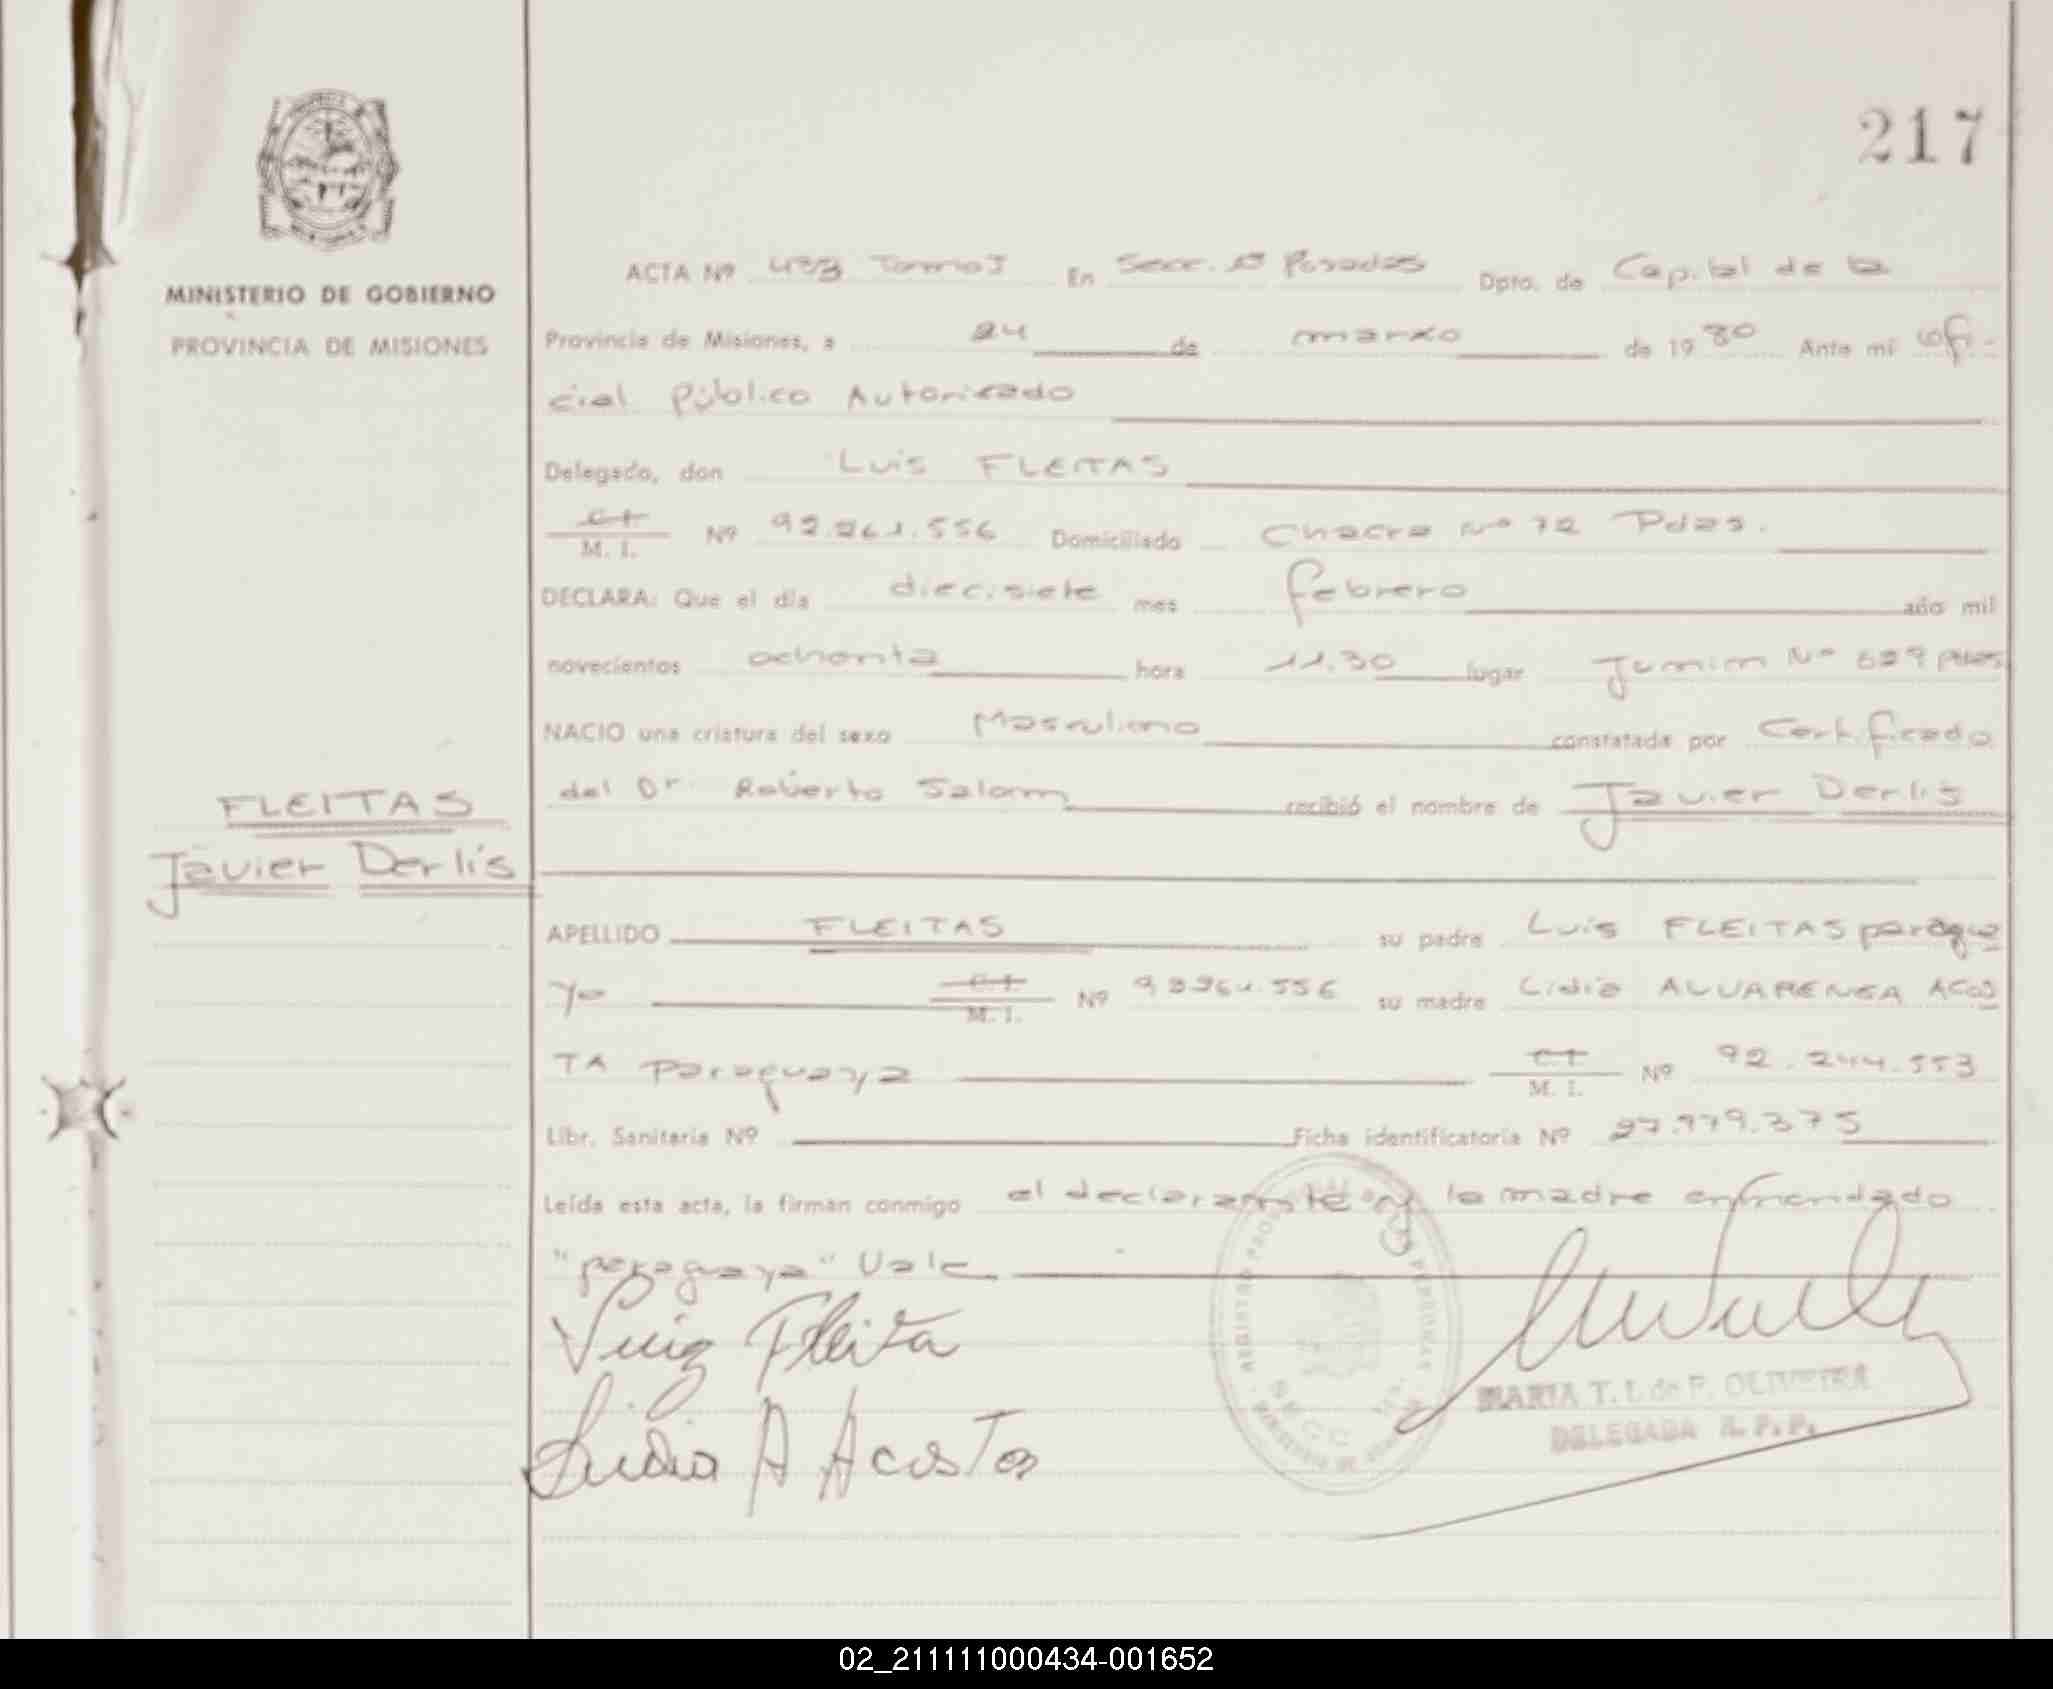 217
MINISTERIO DE GOBIERNO
PROVINCIA DE MISIONES
ACTA Nº 433 Tomo I En Secc. 1º Posadas Dpto. de Capital de la
Provincia de Misiones, a 24 de marzo de 1980 Ante mi ofi-
cial Público Autorizado
Delegado, don Luis FLEITAS
C I
M. I. Nº 92.261.556 Domiciliado Chacra Nº 72 Pdas.
DECLARA: Que el día diecisiete mes febrero año mil
novecientos ochenta hora 11.30 lugar Junin Nº 629 Pdas
NACIO una criatura del sexo Masculino constatada por Certificado
del Dr. Roberto Salom recibió el nombre de Javier Derlis
FLEITAS
Javier Derlis
APELLIDO FLEITAS su padre Luis FLEITAS paragua
yo C I
M. I. Nº 92261.556 su madre Lidia ALVARENGA ACOS
TA Paraguaya C I
M. I. Nº 92.244.553
Libr. Sanitaria Nº Ficha identificatoria Nº 27.979.375
Leída esta acta, la firman conmigo el declarante y la madre enmendado
"paraguaya" Vale
Luis Fleita
Lidia A Acosta
MARIA T. I. de F. OLIVEIRA
DELEGADA R. P. P.
02_211111000434-001652